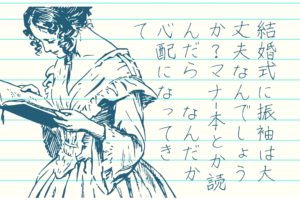 結婚式に振袖は大
丈夫なんでしょう
か?マナー本とか読
んだら なんだか
心配になってき
て